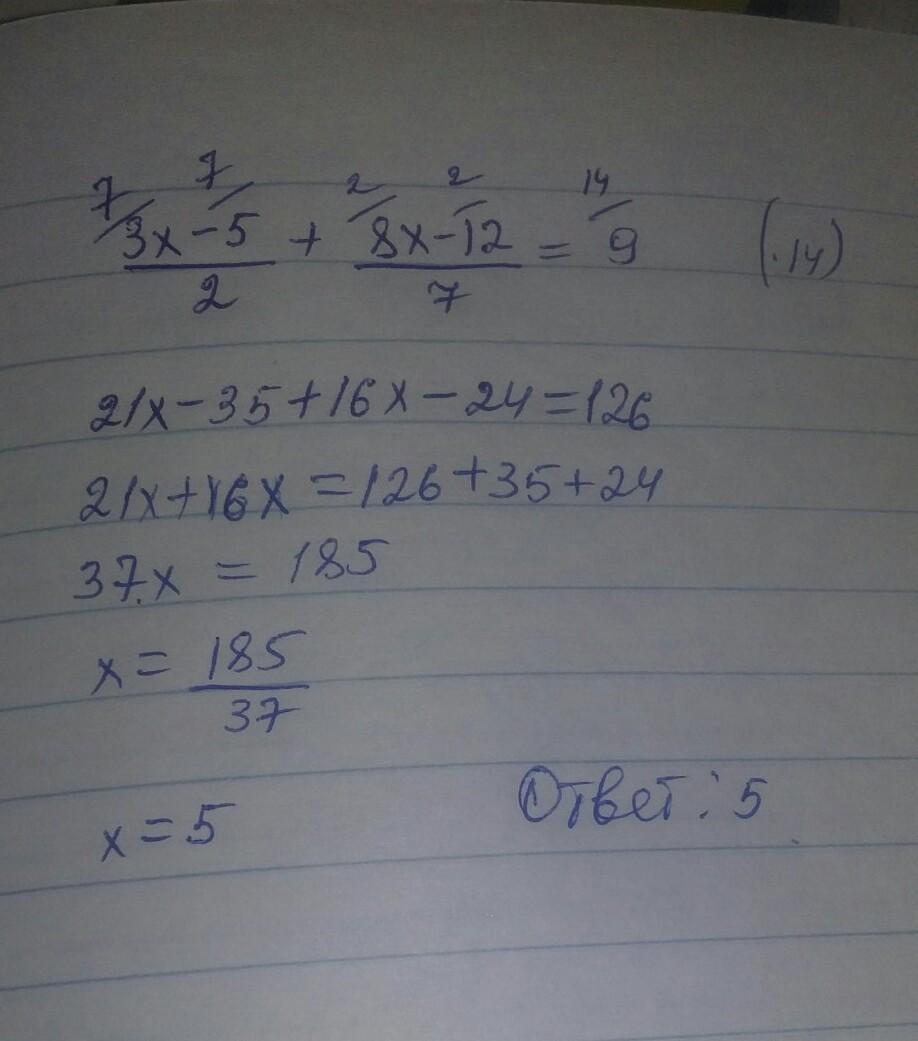 7/ 7/ 2/ 2/ 14/
(3x-5)/2 + (8x-12)/7 = 9 (·14)
21x-35+16x-24=126
21x+16x=126+35+24
37x = 185
x = 185/37
x=5 Ответ: 5